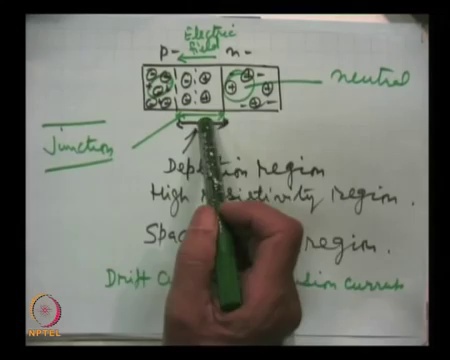 Electric
field
p- n-
neutral
junction
Depletion region
High resistivity region.
region.
Drift
NPTEL